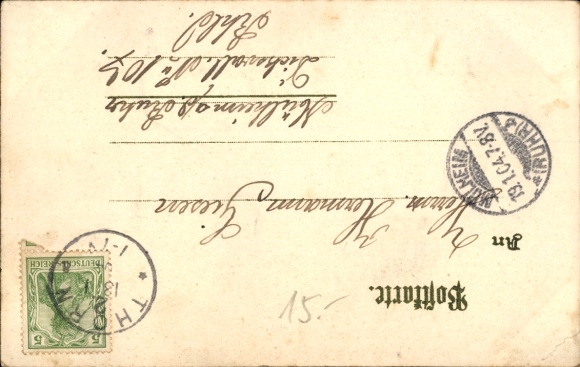 Postkarte.
An
Herrn Hermann Giesen
Mülheim a/d. Ruhr
Dickswall No 105
Rhld.
MÜLHEIM
19.1.04.7-8V.
(RUHR) 3
THORN
5 DEUTSCHES REICH 5
15.-